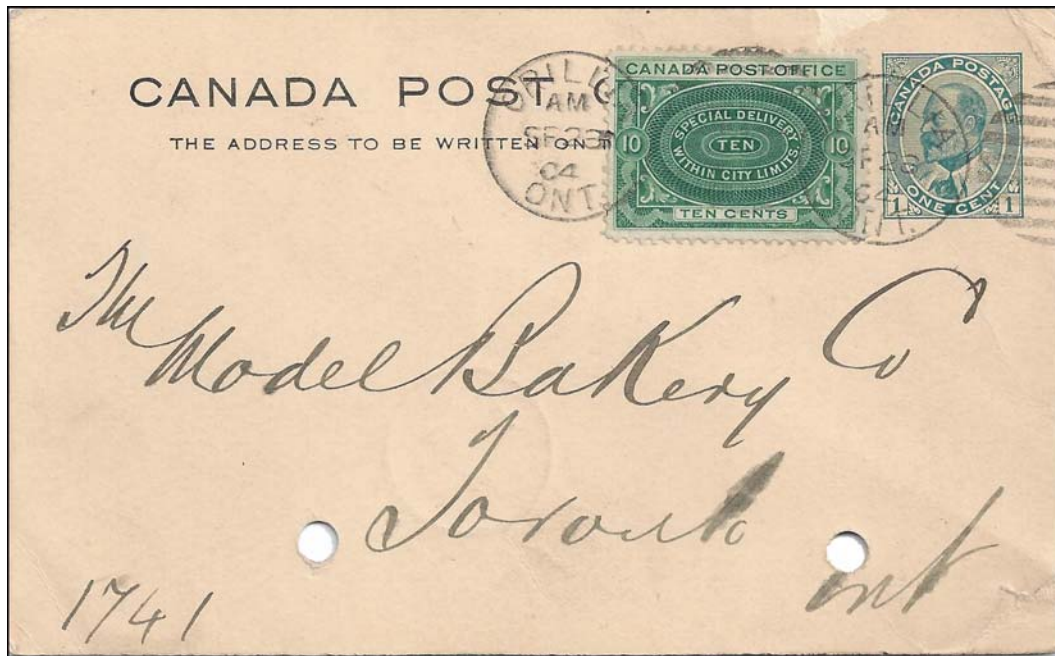 CANADA POST C
THE ADDRESS TO BE WRITTEN ON T
ORILLIA
AM
SE 23
04
ONT.
CANADA POST OFFICE
SPECIAL DELIVERY
10 TEN 10
WITHIN CITY LIMITS.
TEN CENTS
AM
04
NT.
CANADA POSTAGE
1 ONE CENT 1
The
Model Bakery Co
Toronto
Ont
1741